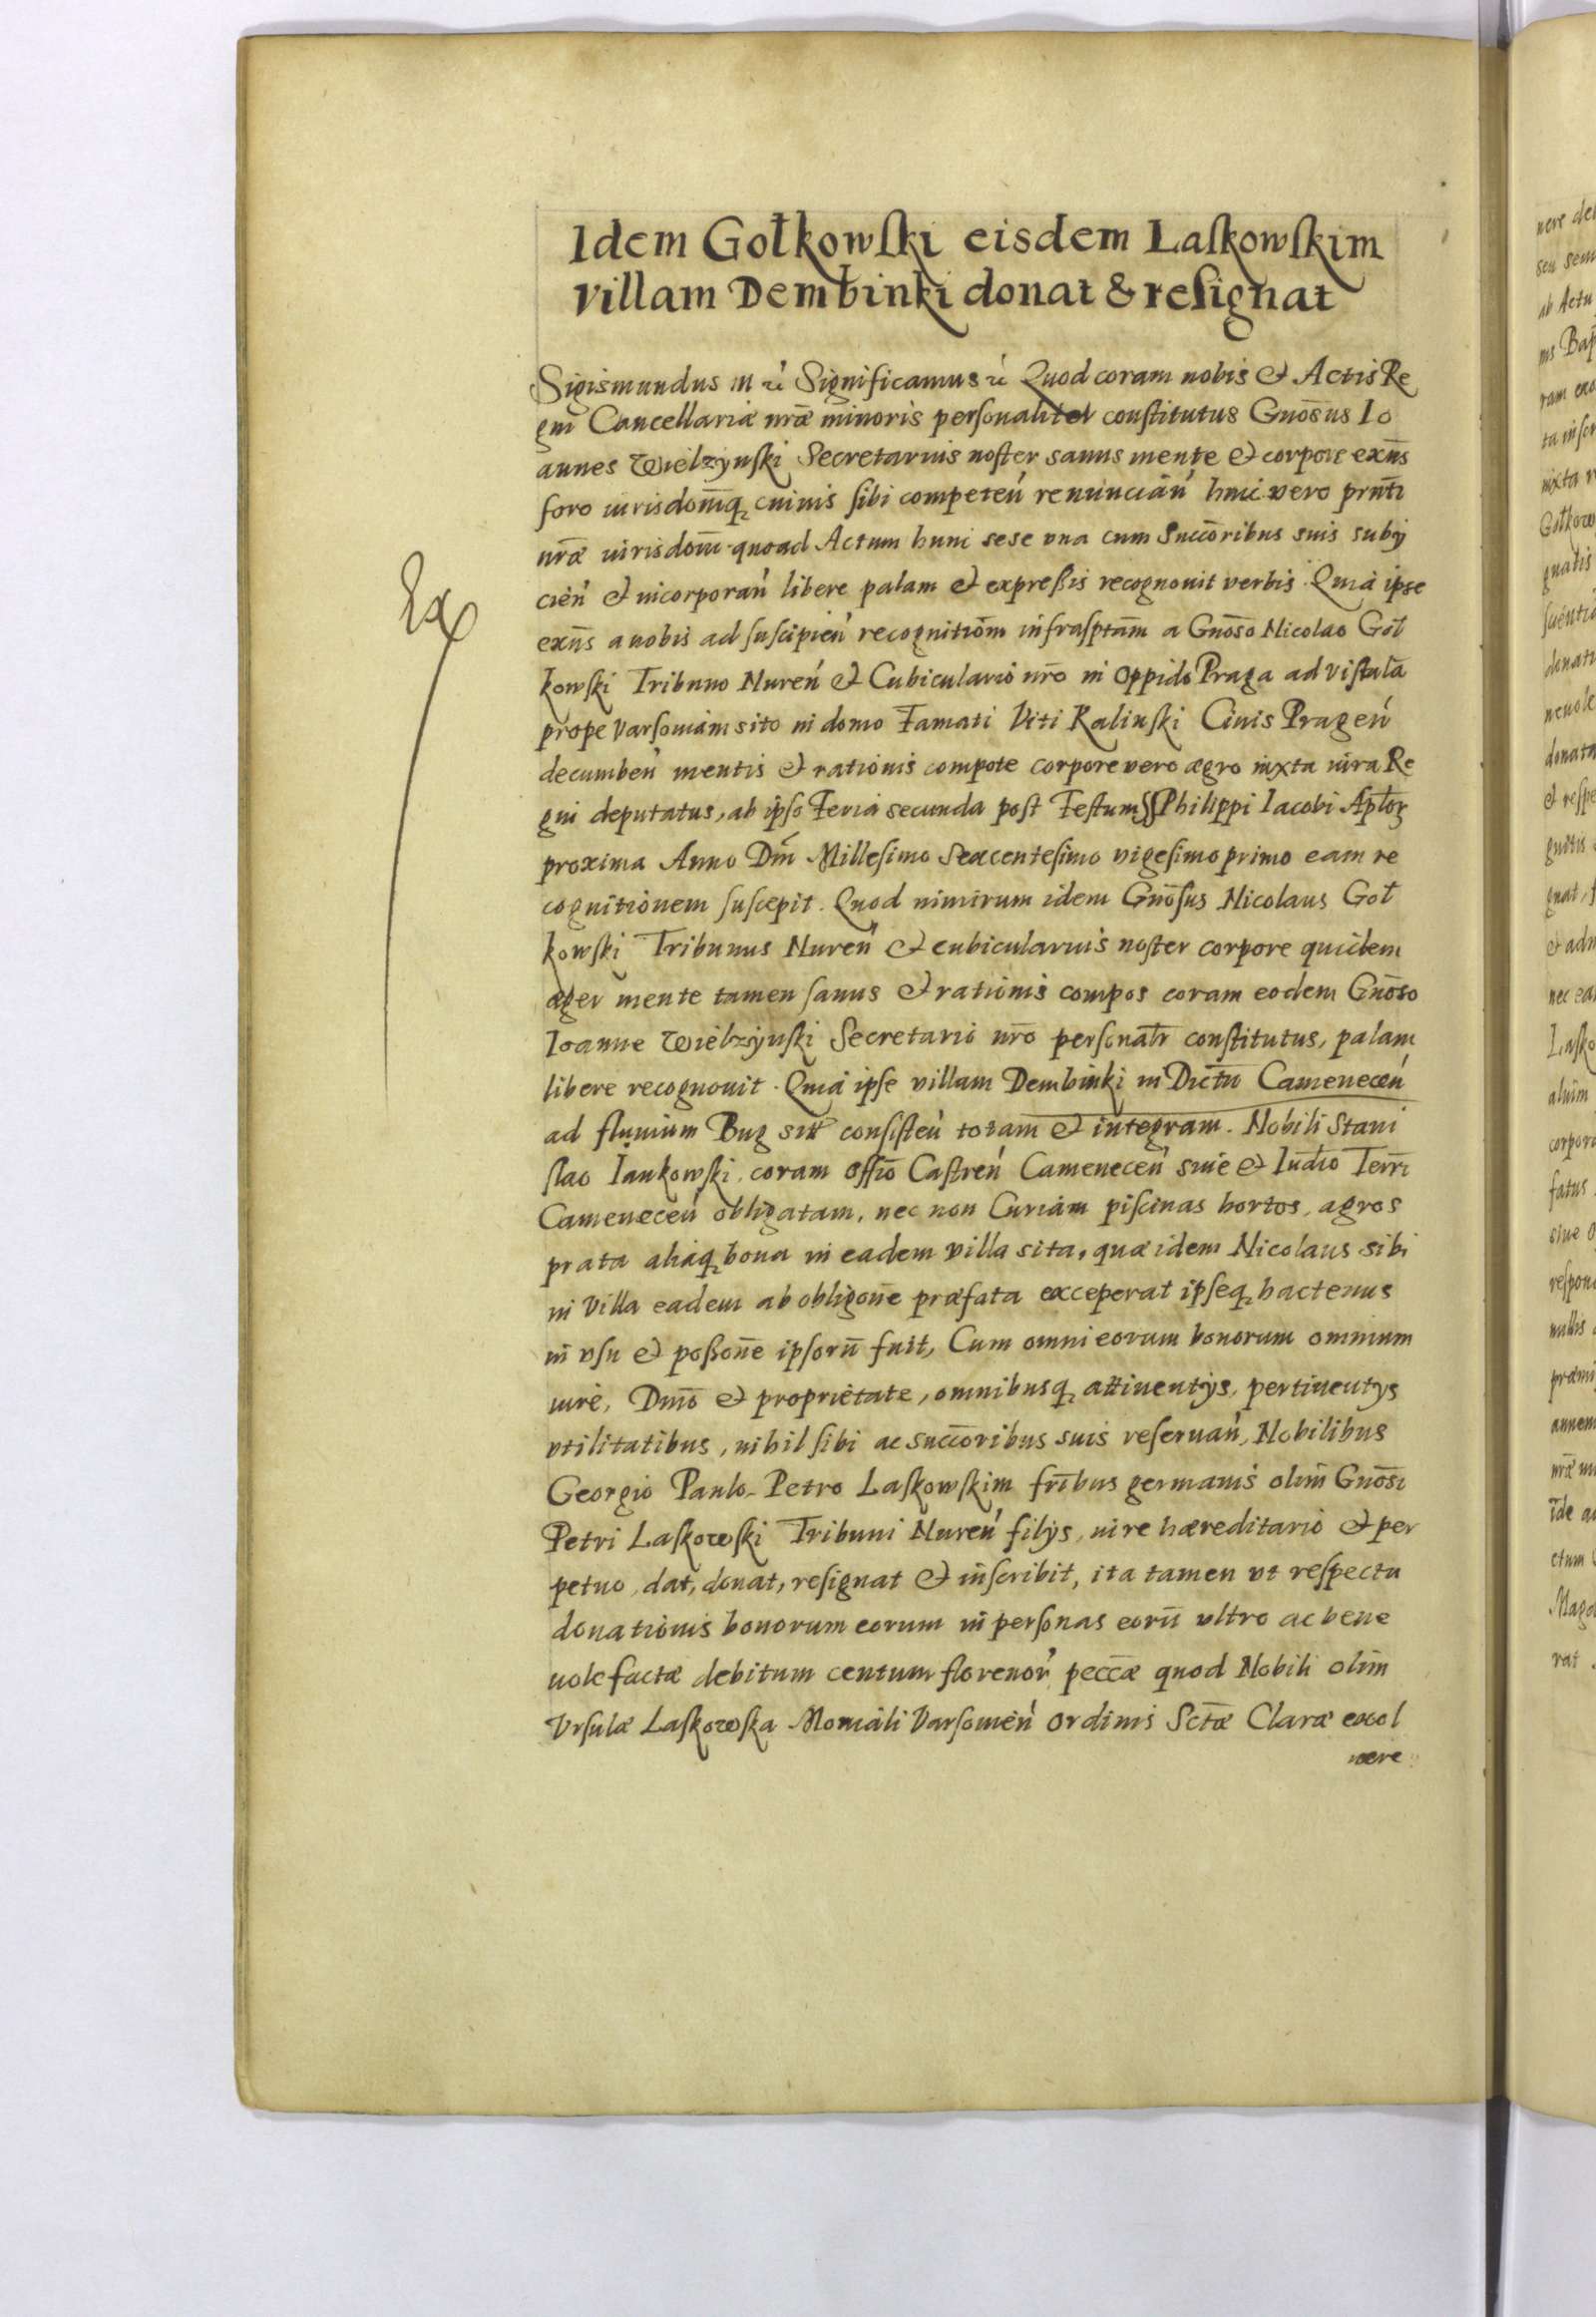 Idem Gołkowſki eisdem Laſkowſkim
villam Dembinki donat & reſignat
Sigismundus III ⁊c Significamus ⁊c Quod coram nobis & Actis Re
gni Cancellariæ nr̃æ minoris perſonaliter conſtitutus Gnōsus Io
annes Wielzÿnſki Secretarius noſter sanus mente & corpore exñs
foro iurisdom̃q; cuiuis ſibi competeń renuncian̓ huic vero prn̄ti
nr̃æ iurisdom̃ quoad Actum hunc sese vna cum Succ̄oribus suis subÿ
cień & incorporań libere palam & expreſſis recognouit verbis. Quia ipse
exñs a nobis ad ſuſcipień recognitiōm infraſptām a Gnōso Nicolao Goł
kowſki Tribuno Nureń & Cubiculario nr̃o in oppido Praga ad viſtulā
prope Varſouiam sito in domo Famati Viti Kalinſki Ciuis Prageń
decumbeń mentis & rationis compote corpore vero ægro iuxta iura Re
gni deputatus, ab ipſo Feria secunda poſt Feſtum SS Philippi Iacobi Apl̃oꝝ
proxima Anno Dm̃ Milleſimo Sexcenteſimo vigeſimo primo eam re
cognitionem ſuſcepit. Quod nimirum idem Gnōſus Nicolaus Goł
kowſki Tribunus Nureń & cubicularius noſter corpore quidem
æger mente tamen ſanus & rationis compos coram eodem Gnōso
Ioanne Wielzÿnſki Secretario nr̃o perſonal̃r conſtitutus, palam
libere recognouit. Quia ipſe villam Dembinki in Dictū Cameneceń
ad fluuium Bug conſiſteń totam & integram. Nobili Stani
ſlao Iankowſki, coram Offiō Caſtreń Cameneceń siue & Iud̄io Terr̄i
Cameneceń obligatam, nec non Curiam piſcinas hortos, agros
prata aliaq; bona in eadem villa sita, quæ idem Nicolaus sibi
in Villa eadem ab obligōne præfata exceperat ipſeq; hactenus
in vſu & poſſōne ipſorū fuit, Cum omni eorum bonorum omnium
iure, Dm̃o & proprietate, omnibusq; attinentÿs, pertinentÿs
vtilitatibus, nihil ſibi ac succ̄oribus suis reſeruań, Nobilibus
Georgio Paulo Petro Laſkowſkim fr̄ibus germanis olim Gnōsi
Petri Laſkowſki Tribuni Nureń filÿs, iure hæreditario & per
petuo, dat, donat, reſignat & inſcribit, ita tamen vt reſpectu
donationis bonorum eorum in perſonas eorū vltro ac bene
uole factæ debitum centum florenor̓ pecc̄æ quod Nobili olim
Vrſulæ Laſkowſka Moniali Varſouień Ordinis Sctæ Claræ exol
uere
Ex